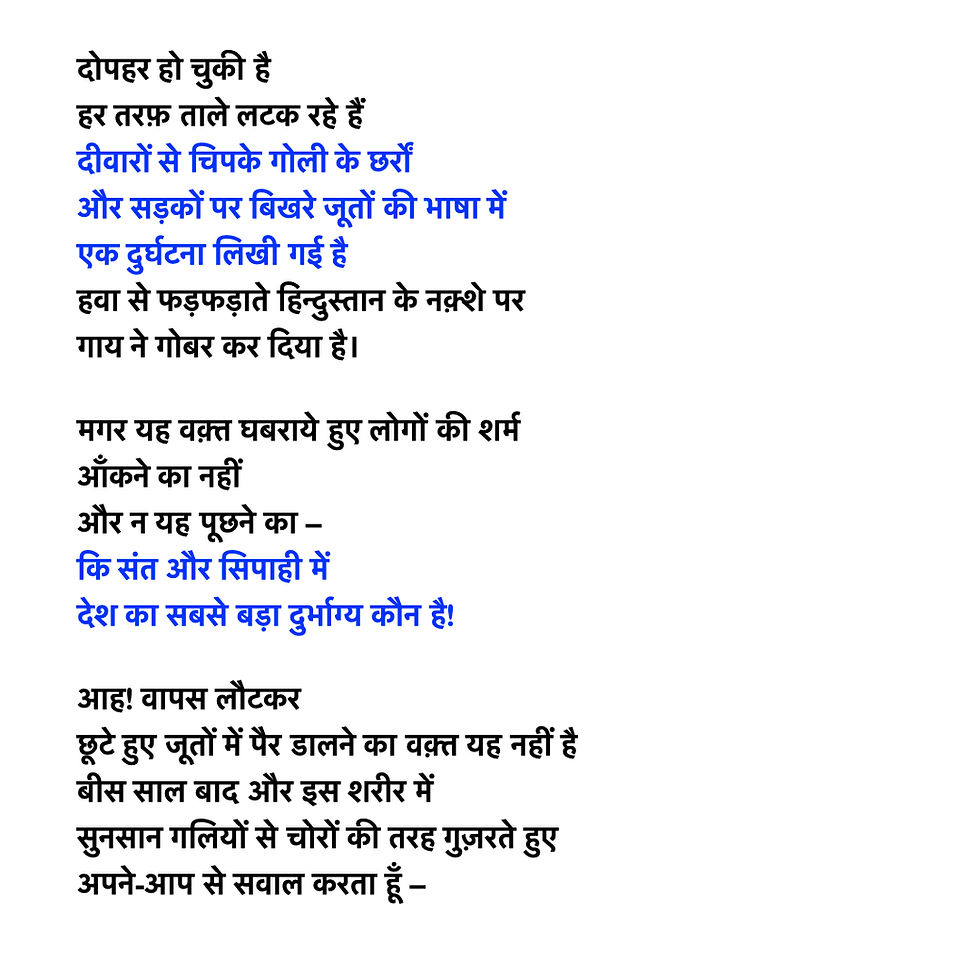 दोपहर हो चुकी है
हर तरफ़ ताले लटक रहे हैं
दीवारों से चिपके गोली के छर्रों
और सड़कों पर बिखरे जूतों की भाषा में
एक दुर्घटना लिखी गई है
हवा से फड़फड़ाते हिन्दुस्तान के नक़्शे पर
गाय ने गोबर कर दिया है।
मगर यह वक़्त घबराये हुए लोगों की शर्म
आँकने का नहीं
और न यह पूछने का –
कि संत और सिपाही में
देश का सबसे बड़ा दुर्भाग्य कौन है!
आह! वापस लौटकर
छूटे हुए जूतों में पैर डालने का वक़्त यह नहीं है
बीस साल बाद और इस शरीर में
सुनसान गलियों से चोरों की तरह गुज़रते हुए
अपने-आप से सवाल करता हूँ –